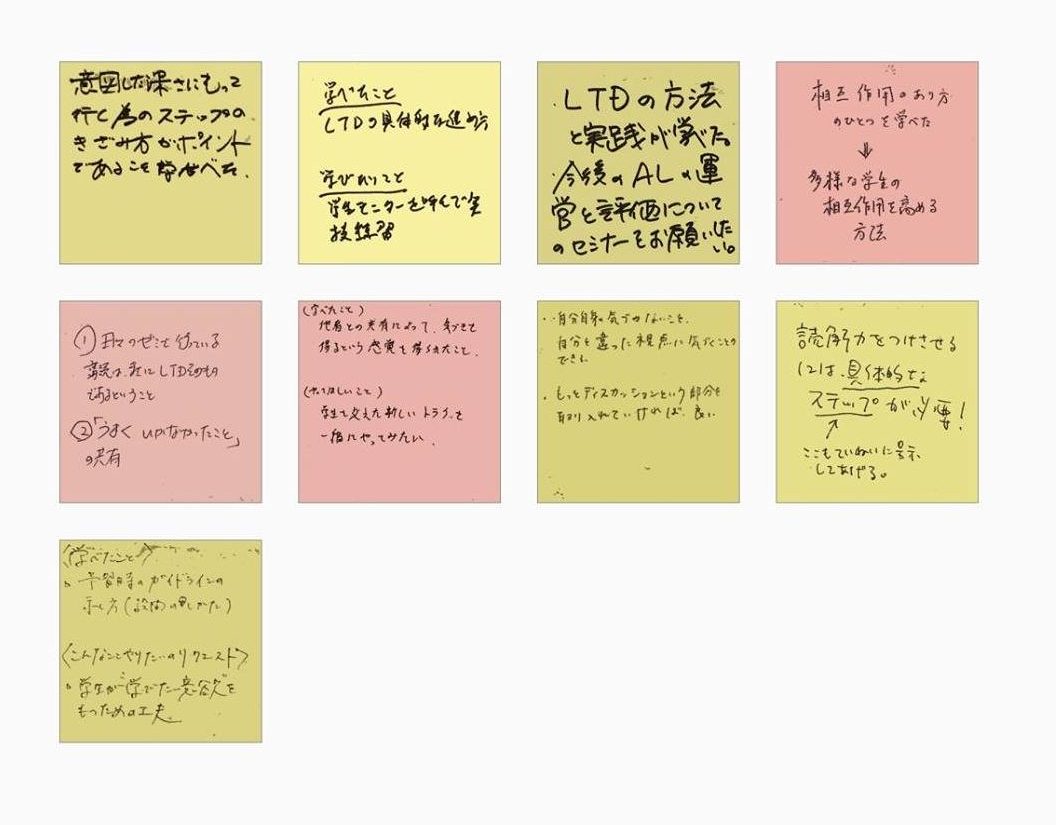 意図した深さにもって
行く為のステップの
きざみ方がポイント
であることを学べた.
学べたこと
LTDの具体的な進め方
学びたいこと
学生モニターを呼んで実
技練習
LTDの方法
と実践が学べた
今後のALの運
営と評価について
のセミナーをお願いした
い。
相互作用のあり方
のひとつを学べた
⇓
多様な学生の
相互作用を高める
方法
①日々のゼミで行っている
は、正にLTDそのもの
であるということ
②「うまくいかなかったこと」
の共有
(学べたこと)
他者との共有によって、気づきを
得るという感覚を得られたこと.
(やってほしいこと)
学生を交えた新しいトライを
一緒にやってみたい.
・自分自身の気づかないこと、
自分と違った視点に気づくことが
できた.
・もっとディスカッションという部分を
取り入れていければ、良い
読解力をつけさせる
には、具体的な
ステップが必要!
ここもていねいに提示
してあげる。
〈学べたこと〉
・予習時のガイドラインの
示し方(設問の出しかた)
〈こんなことやりたいのリクエスト〉
・学生が"学びたい意欲"を
もつための工夫.